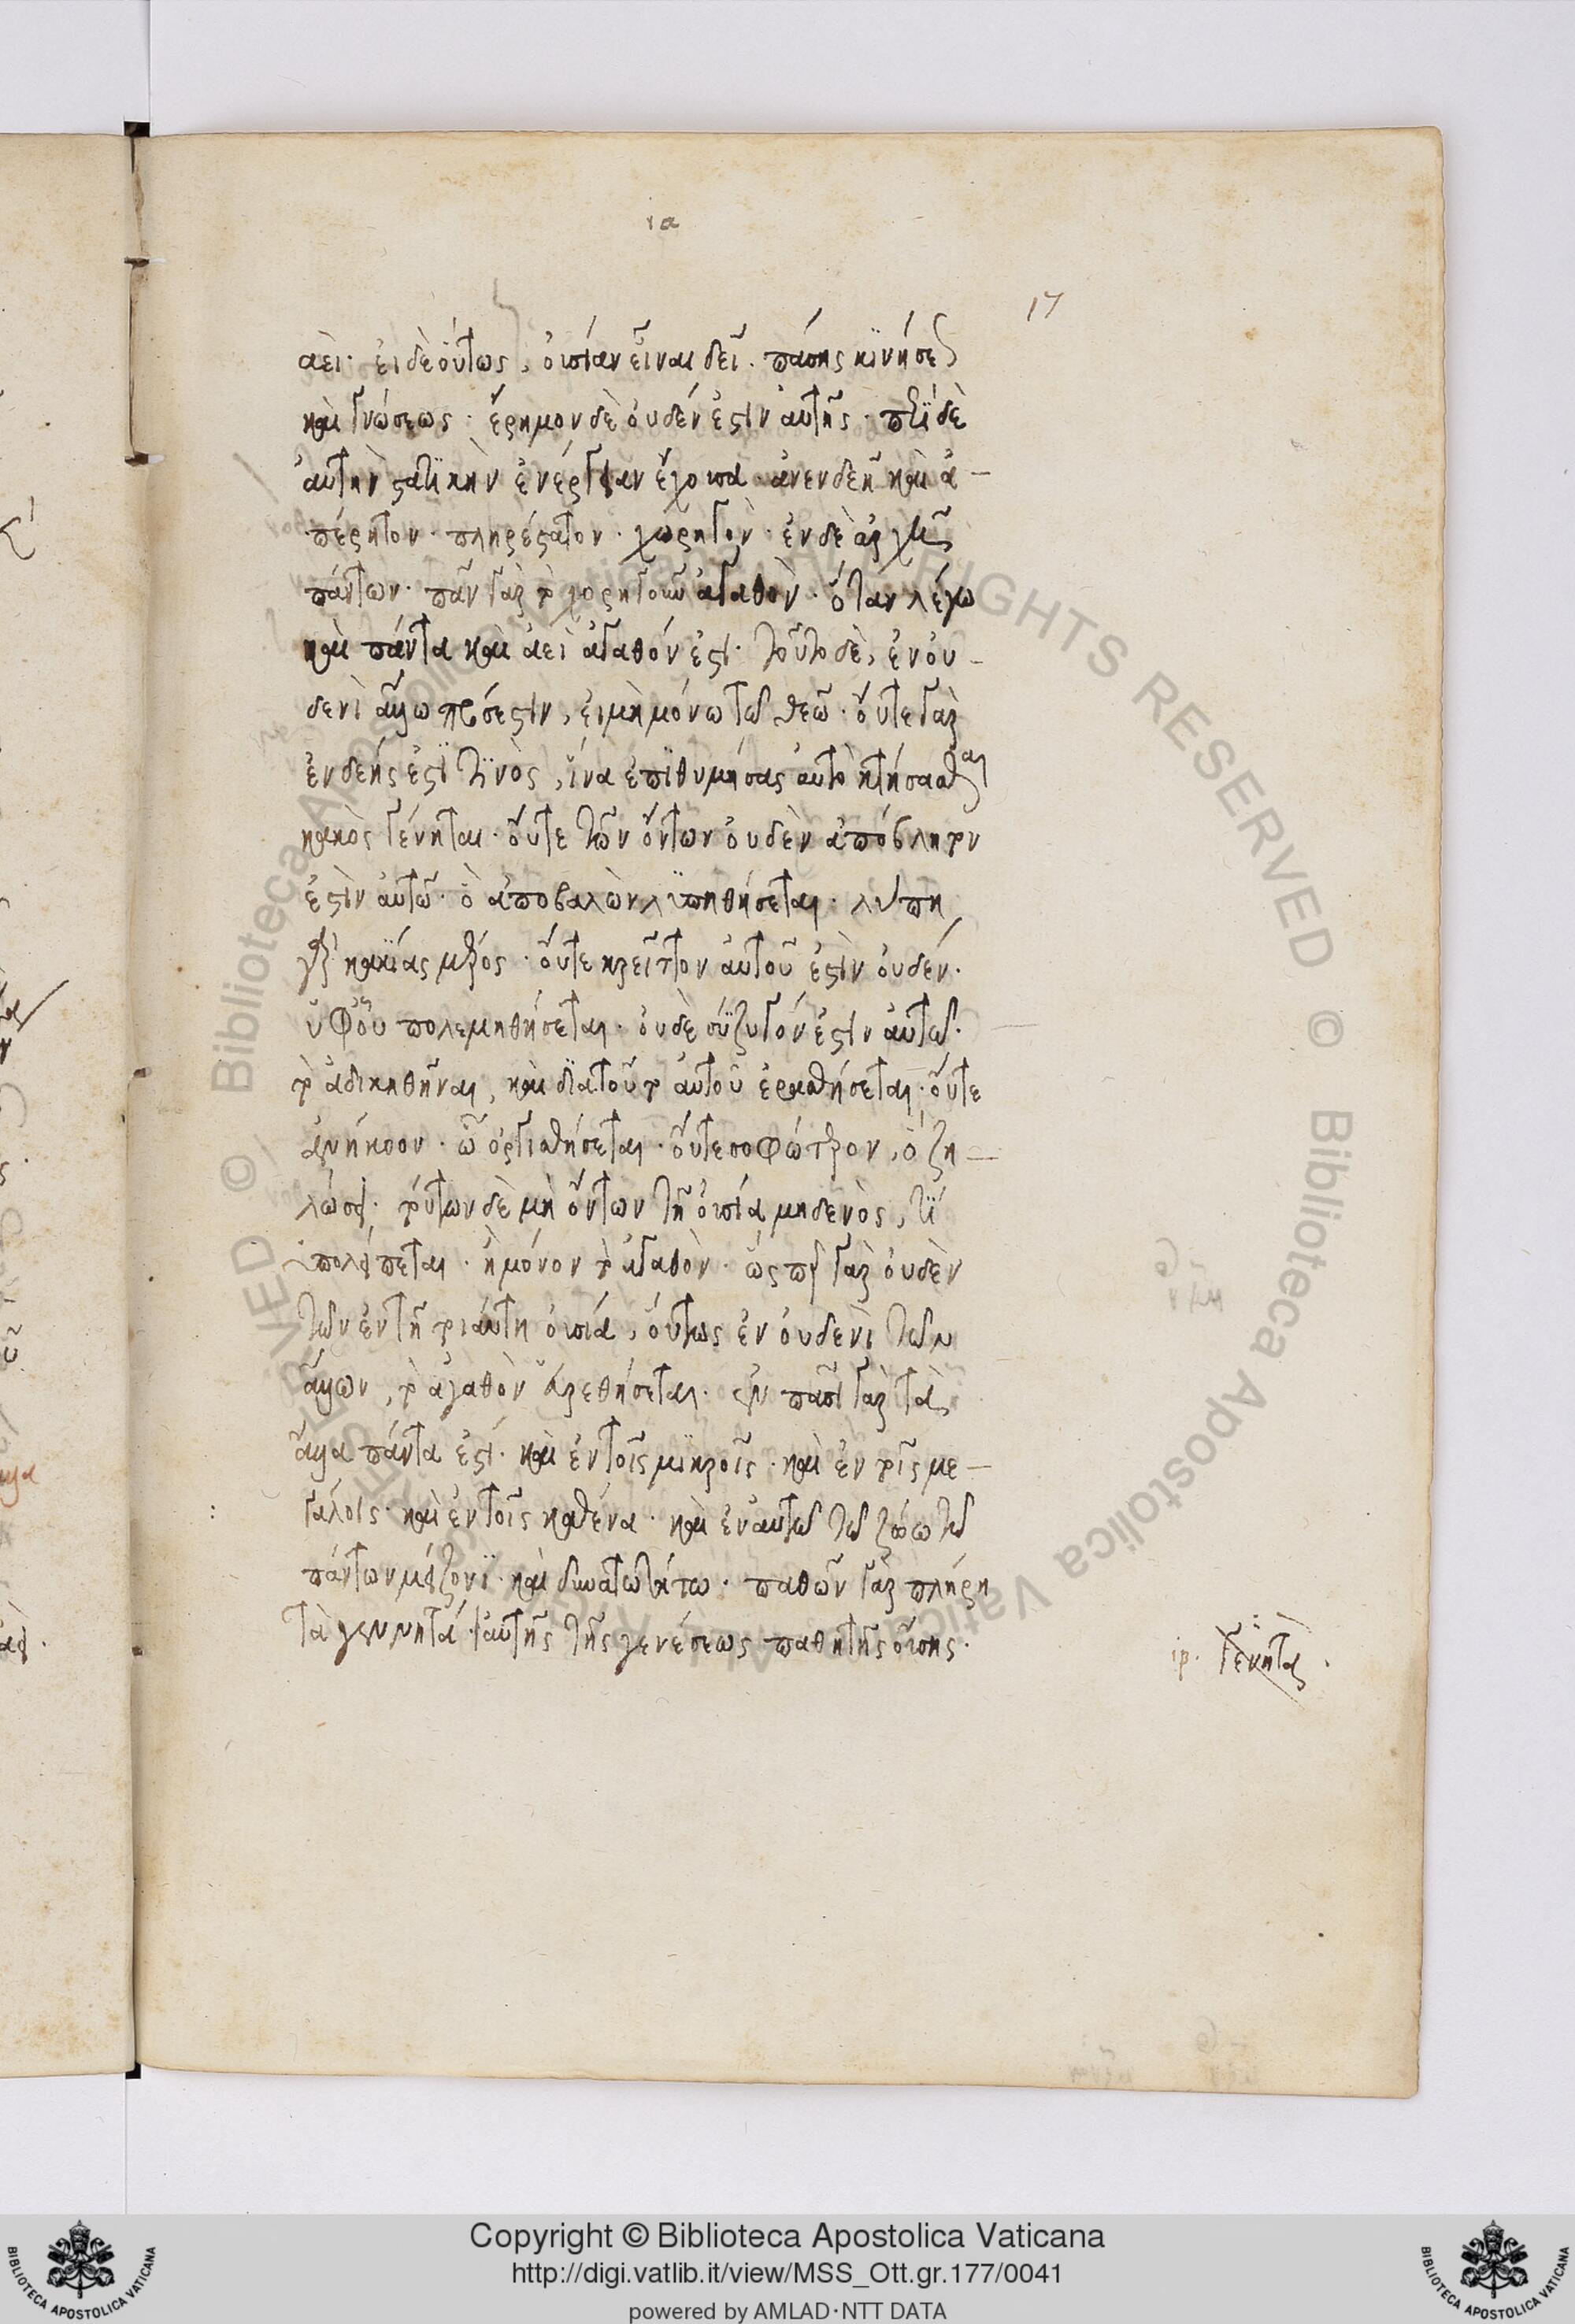 ια
17
ἀεὶ· εἰ δὲ οὕτως, οὐσίαν εἶναι δεῖ· πάσης κϊνήσεως
καὶ γνώσεως· ἔρημον δὲ οὐδέν ἐστὶν αὐτῆς· περὶ δὲ
αὐτὴν στατϊκὴν ἐνέργειαν ἔχουσα· ἀνενδεῆ καὶ ἀ-
πέρητον· πληρέστατον· χωρητὸν· ἐν δὲ ἀρχῆ
πάντων· πᾶν γὰρ τὸ χορηγοῦν ἀγαθὸν· ὅταν λέγω
καὶ πάντα καὶ ἀεὶ ἀγαθόν ἐστι· τοῦτο δὲ, ἐν οὐ-
δενὶ ἄλλω πρόσεστιν, εἰ μὴ μόνω τῶ θεῶ· οὔτε γὰρ
ἐνδεής ἐστί τϊνὸς, ἵνα ἐπϊθυμήσας αὐτὸ κτήσασθαι
κακὸς γένηται· οὔτε τῶν ὄντων οὐδὲν ἀπόβλητον
ἐστὶν αὐτῶ· ὃ ἀποβαλὼν λϋπηθήσεται· λύπη
γὰρ κακίας μέρος· οὔτε κρεῖττον αὐτοῦ ἐστὶν οὐδέν·
ὑφ' οὗ πολεμηθήσεται· οὐδὲ σύζυγόν ἐστὶν αὐτῶ·
τὸ ἀδικηθῆναι, καὶ διὰ τοῦτο αὐτοῦ ἐρασθήσεται· οὔτε
ἀνήκοον· ᾧ ὀργισθήσεται· οὔτε σοφώτερον, ὃ ζη-
λώσει· τούτων δὲ μὴ ὄντων τῆ οὐσία μηδενὸς, τί
ὑπολείπεται· ἢ μόνον τὸ ἀγαθὸν· ὥσπερ γὰρ οὐδὲν
τῶν ἐν τῆ τοιαύτη οὐσία, οὕτως ἐν οὐδενὶ τῶν
ἄλλων, τὸ ἀγαθὸν εὑρεθήσεται· ἐν πᾶσι γὰρ τὰ
ἄλλα πάντα ἐστί· καὶ ἐν τοῖς μϊκροῖς· καὶ ἐν τοῖς με-
γάλοις· καὶ ἐν τοῖς καθένα· καὶ ἐν αὐτῶ τῶ ζώω τῶ
πάντων μείζονϊ· καὶ δυνατωτάτω· παθῶν γὰρ πλήρη
τὰ γεννητά· αὐτῆς τῆς γενέσεως παθητῆς οὔσης·